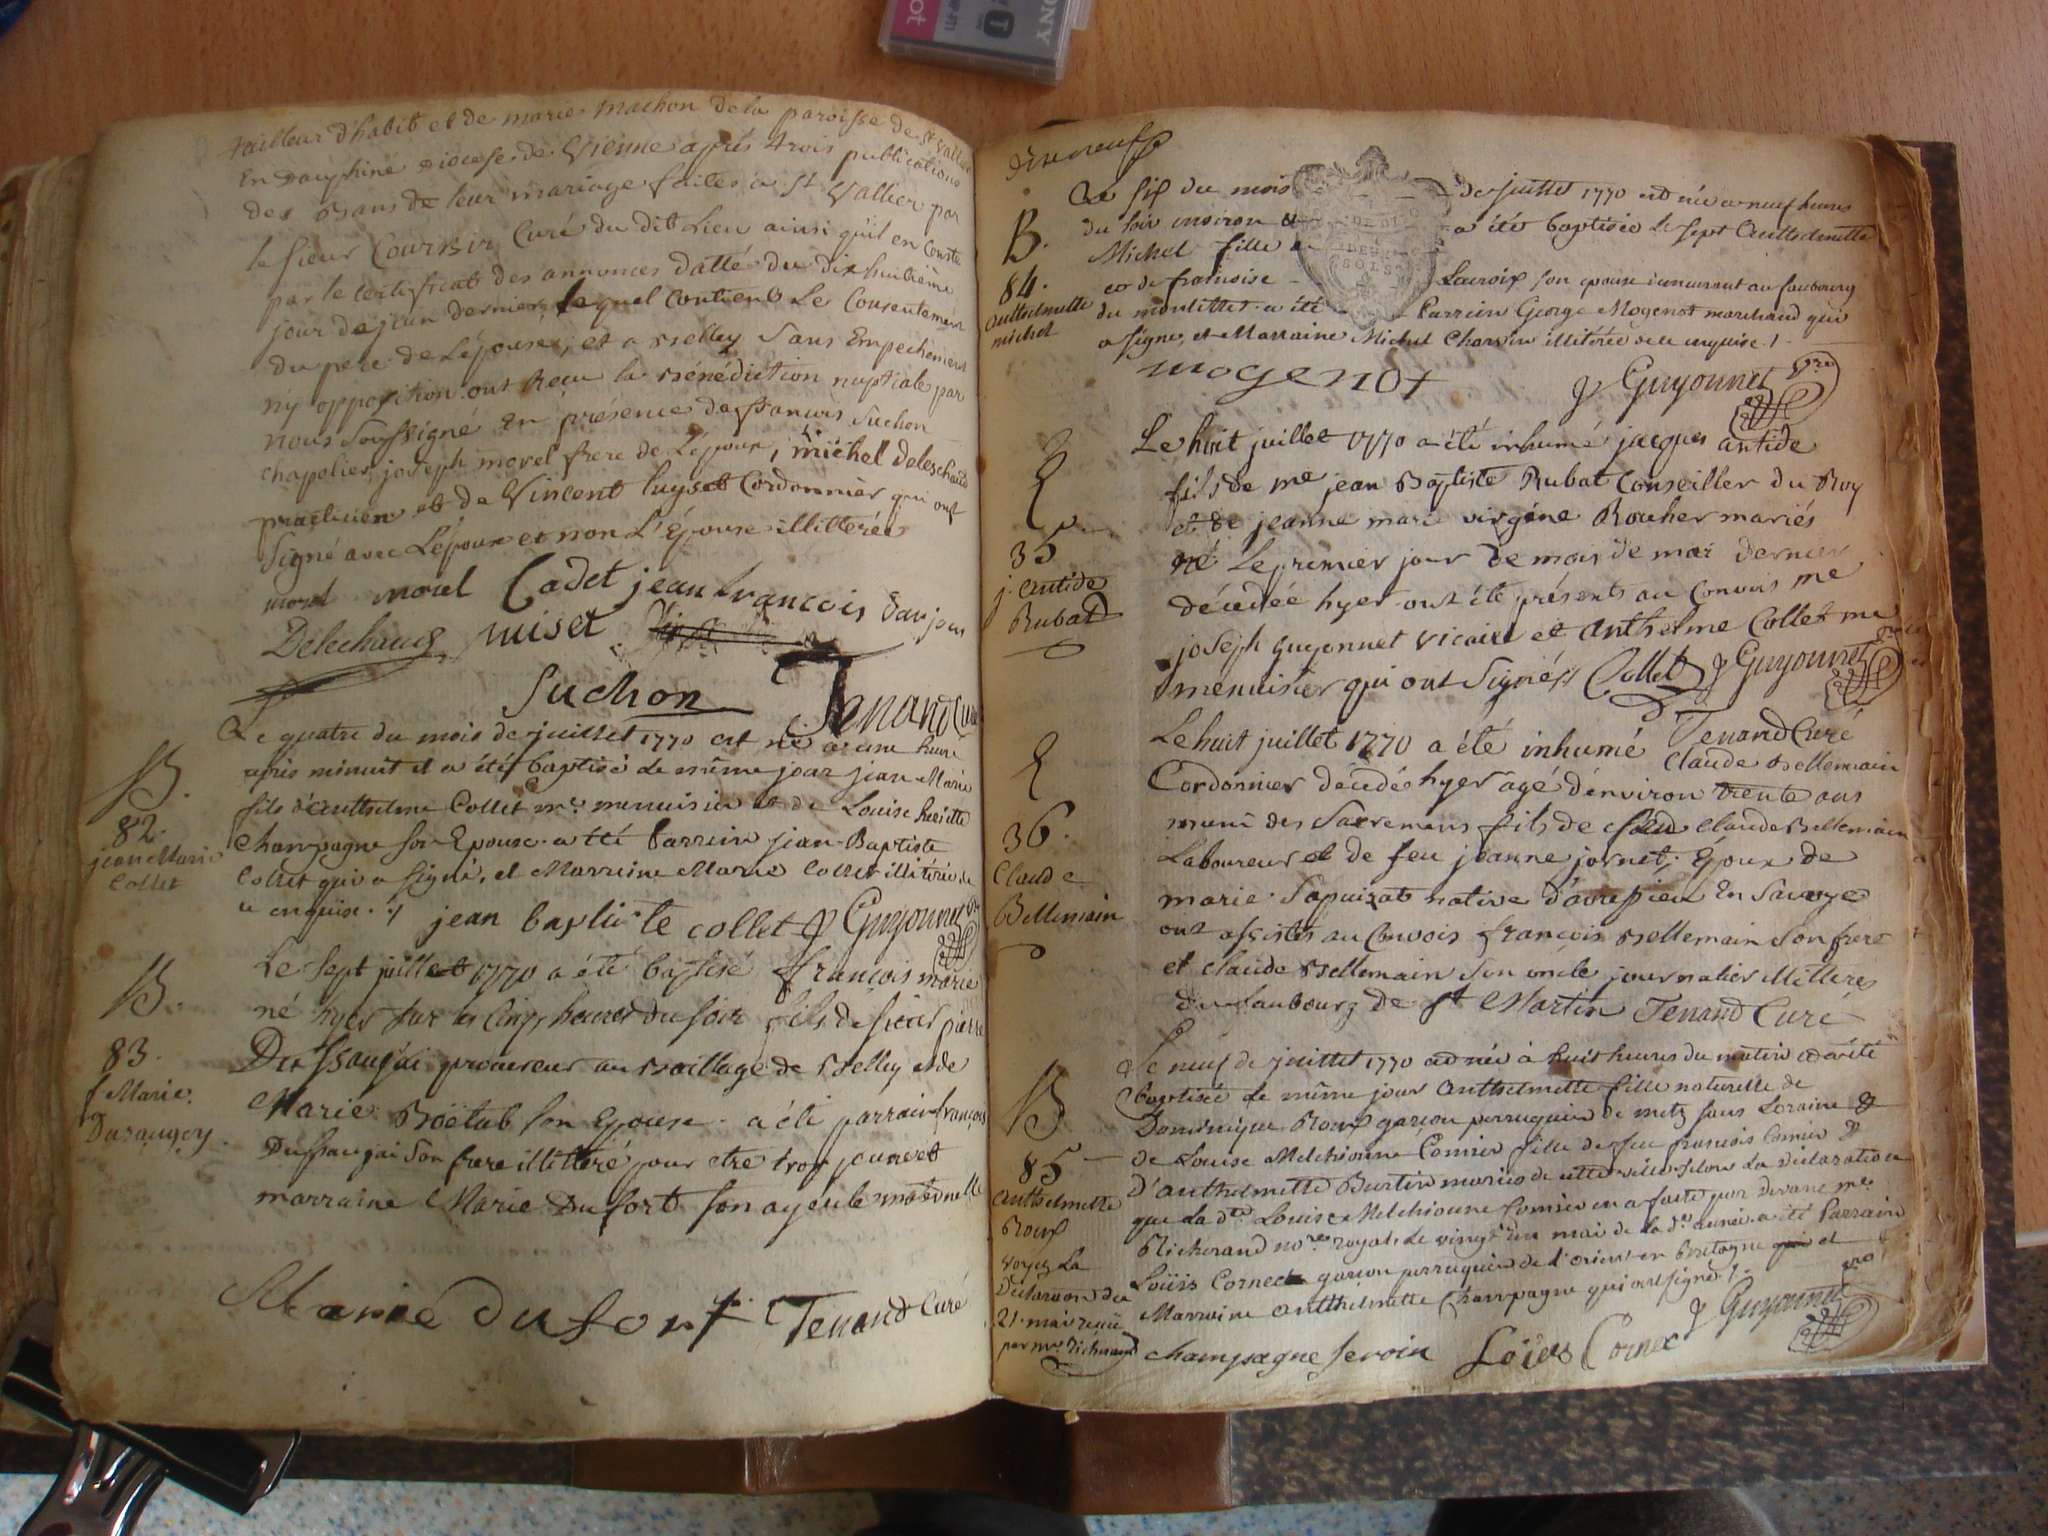 SONY
tailleur d'habit et de marie machon de la paroisse de St Vallier
En Dauphiné diocese de Vienne après trois publications
des Bans de leur mariage faites a St Vallier par
le sieur Courbir Curé du dit Lieu ainsi qu'il en Conste
par le certificat des annonces datté du dix huitième
jour de juin dernier, lequel Contient Le Consentement
du pere de L'épouse, et a Belley Sans Empechement
ny opposition ont Recu la Bénédiction nuptiale par
nous Soussigné En présence de francois Suchon
chapelier, joseph morel frere de L'époux, michel deleschaud
practicien et de Vincent luyset Cordonnier qui ont
Signé avec L'époux et non L'Epouse illitterée
morel morel Cadet jean francois
Delechaud
Suchon Tenand Curé
Le quatre du mois de juillet 1770 est né a une heure
après minuit et a été baptisé le même jour jean Marie
fils d'Anthelme Collet me. menuisier et de Louise
Champagne son Epouse a été Parrein jean Baptiste
Collet qui a signé, et Marreine Marie Collet illitérée de
ce enquise ./
B.
82.
jean Marie
Collet
jean baptiste collet J Guyonnet
Le Sept juillet 1770 a été baptisé françois marie
né hyer sur les Cinq heures du soir fils de sieur pierre
Dussaugai procureur au Baillage de Belley et de
Marie Boëtub son Epouse. a été parrain françois
Dussaugai Son frere illitteré pour etre trop jeune et
marraine Marie Dufort son ayeule maternelle
B.
83.
f Marie
Dusaugey.
Marie dufort Tenand Curé
dixneuf
Le six du mois de Juillet 1770 est née a neuf heures
du soir environ & a été baptisée le sept Anthelmette
Michel fille
et de francoise Lacroix son epouse demeurant au faubourg
du a été Parrein George Mogenot marchand qui
a signé, et Marraine Michel Charvin illitérée de ce enquise ./.
B.
84.
Anthelmette
michel
mogenot J Guyonnet
Le huit juillet 1770 a été inhumé jacques antide
fils de me jean Baptiste Rubat Conseiller du Roy
et de jeanne marie virgine Rouher mariés
né Le premier jour de mois de mai dernier
décedée hyer ont été présents au Convois me
joseph guyonnet vicaire et Anthelme Collet me
menuisier qui ont Signés Collet J Guyonnet
Tenand Curé
35
j. antide
Rubat
Le huit juillet 1770 a été inhumé Claude Bellemain
Cordonnier décedé hyer agé d'environ trente ans
muni des Sacremens fils de Claude Bellemain
Laboureur et de feu jeanne jornet, Epoux de
marie native En Savoye
ont assistés au Convois françois Bellemain Son frere
et Claude Bellemain Son oncle journalier illitteres
du faubourg de St Martin Tenand Curé
36.
Claude
Bellemain
Le neuf de juillet 1770 est née à huit heures du matin et a été
baptisée le même jour Anthelmette fille naturelle de
Dominique Roux garçon perruquier de metz sous Loraine &
de Louise Melchionne Comier fille de feu francois Comier &
D'anthelmette Burtin mariés de cette ville selon La déclaration
que La dte Louise Melchionne Comier en a faite par devant me
Richerand nore royal, Le vingt un mai de la de. année. a été Parrain
Loüis Cornec garcon perruquier de l'orient en Bretagne et
Marraine Anthelmette Champagne qui ont signé ./.
B
85
Anthelmette
Roux
voyez La
Declaration du
21. mai recue
par mr. Richerand
champagne Loüis Cornec J Guyonnet